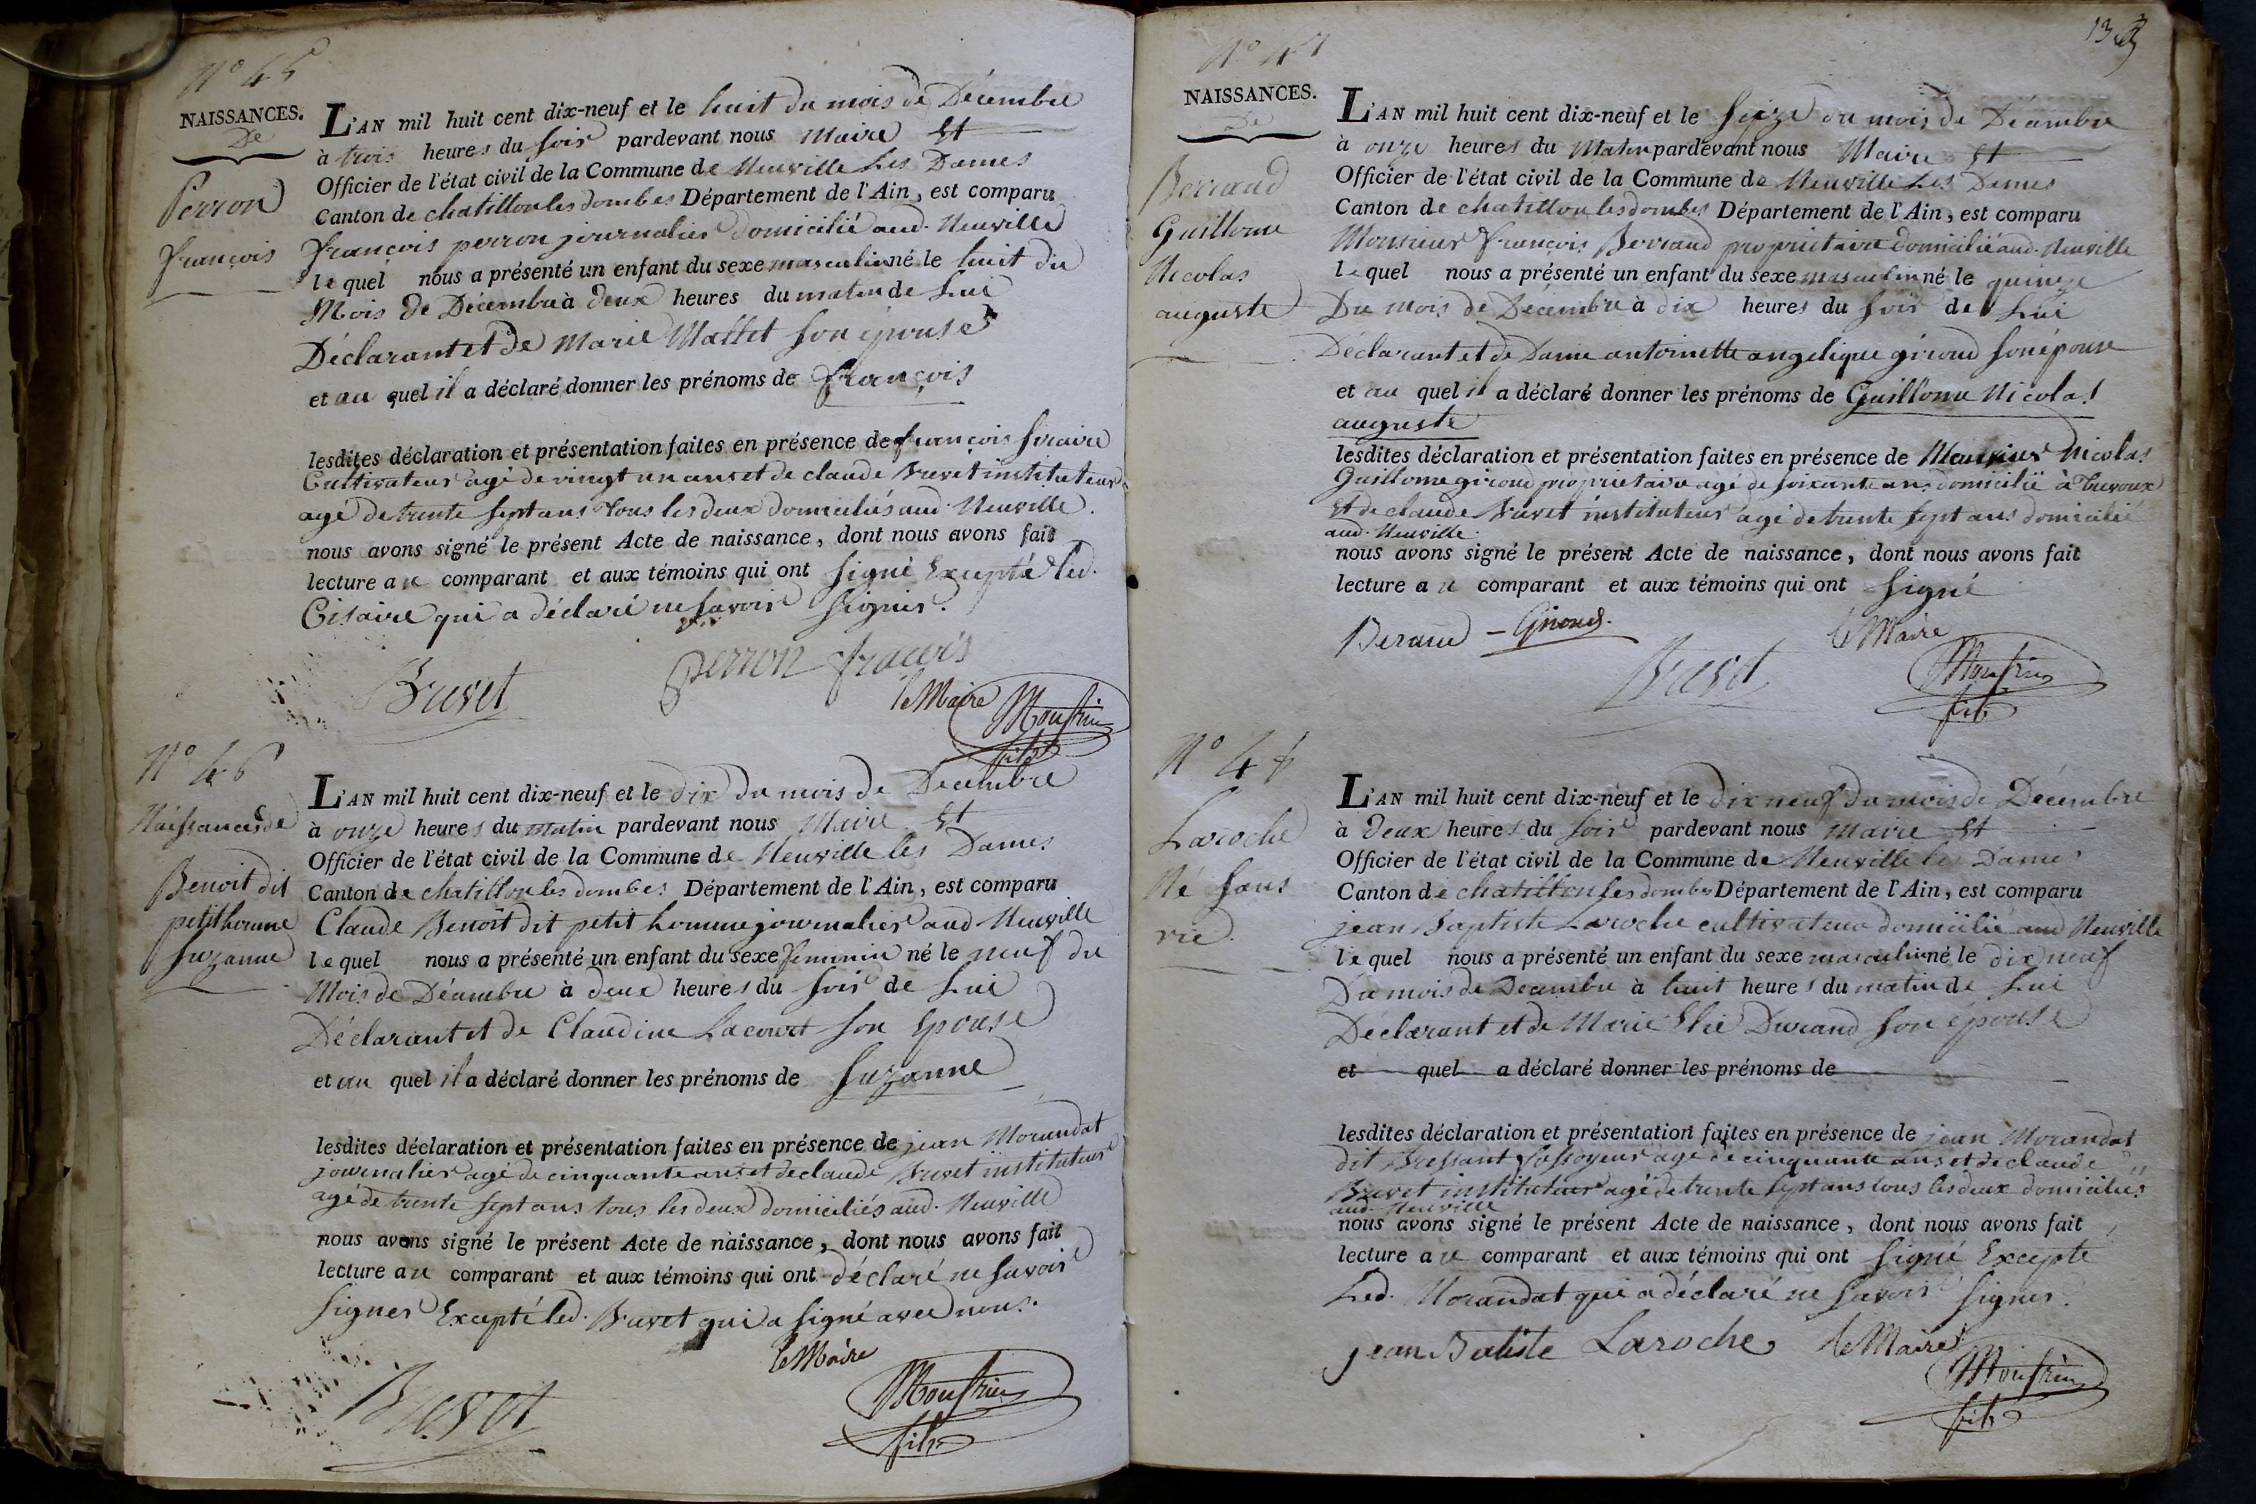 N° 45
NAISSANCES.
De
Perron
françois
L'AN mil huit cent dix-neuf et le huit du mois de Décembre
à trois heures du soir pardevant nous Maire Et
Officier de l'état civil de la Commune de Neuville Les Dames
Canton de chatillon les dombes Département de l'Ain, est comparu
françois perron journalier domicilié aud. Neuville
lequel nous a présenté un enfant du sexe masculin né le huit du
Mois de Décembre à deux heures du matin de Lui
Déclarant et de Marie Mattet son épouse
et au quel il a déclaré donner les prénoms de françois
lesdites déclaration et présentation faites en présence de françois
Cultivateur agé de vingt un ans et de claude Buvet instituteur
agé de trente sept ans tous les deux domiciliés aud. Neuville.
nous avons signé le présent Acte de naissance, dont nous avons fait
lecture au comparant et aux témoins qui ont signé Excepté led.
qui a déclaré ne savoir signer.
Buvet
perron fracois
le Maire
fils
N° 46
Naissances de
Benoit dit
petit homme
suzanne
L'AN mil huit cent dix-neuf et le dix du mois de Décembre
à onze heures du matin pardevant nous Maire Et
Officier de l'état civil de la Commune de Neuville les Dames
Canton de chatillon les dombes Département de l'Ain, est comparu
Claude Benoit dit petit homme journalier aud. Neuville
lequel nous a présenté un enfant du sexe feminin né le neuf du
Mois de Décembre à deux heures du soir de Lui
Déclarant et de Claudine Lacourt son Epouse
et au quel il a déclaré donner les prénoms de suzanne
lesdites déclaration et présentation faites en présence de jean Morandat
journalier agé de cinquante ans et de claude Buvet instituteur
agé de trente sept ans tous les deux domiciliés aud. Neuville
nous avons signé le présent Acte de naissance, dont nous avons fait
lecture au comparant et aux témoins qui ont déclaré ne savoir
signer Excepté led. Buvet qui a signé avec nous.
le Maire
Buvet
fils
N° 47
NAISSANCES.
De
Berraud
Guillome
Nicolas
auguste
L'AN mil huit cent dix-neuf et le seize du mois de Décembre
à onze heures du Matin pardevant nous Maire Et
Officier de l'état civil de la Commune de Neuville Les Dames
Canton de chatillon les dombes Département de l'Ain, est comparu
Monsieur françois Berraud propriétaire domicilié aud. Neuville
lequel nous a présenté un enfant du sexe masculin né le quinze
Du mois de Décembre à dix heures du soir de Lui
Déclarant et de Dame antoinette angelique giroud son épouse
et au quel il a déclaré donner les prénoms de Guillome Nicolas
auguste
lesdites déclaration et présentation faites en présence de Monsieur Nicolas
Guillome giroud propriétaire agé de soixante ans domicilié à Trevoux
Et de claude Buvet instituteur agé de trente sept ans domicilié
aud. Neuville.
nous avons signé le présent Acte de naissance, dont nous avons fait
lecture au comparant et aux témoins qui ont signé
Beraud - Giroud.
le Maire
Buvet
fils
N° 48
Laroche
Né sans
vie.
L'AN mil huit cent dix-neuf et le dix neuf du mois de Décembre
à deux heures du soir pardevant nous maire Et
Officier de l'état civil de la Commune de Neuville les Dames
Canton de chatillon les dombes Département de l'Ain, est comparu
jean Baptiste Laroche cultivateur domicilié aud Neuville
lequel nous a présenté un enfant du sexe masculin né le dix neuf
Du mois de Décembre à huit heures du matin de Lui
Déclarant et de Marie Durand son épouse
et quel a déclaré donner les prénoms de
lesdites déclaration et présentation faites en présence de jean Morandat
dit Bressant fossoyeur agé de cinquante ans et de claude
Buvet instituteur agé de trente sept ans tous les deux domiciliés
aud. Neuville
nous avons signé le présent Acte de naissance, dont nous avons fait
lecture au comparant et aux témoins qui ont signé Excepté
Led. Morandat qui a déclaré ne savoir signer.
jean Batiste Laroche
le Maire
fils